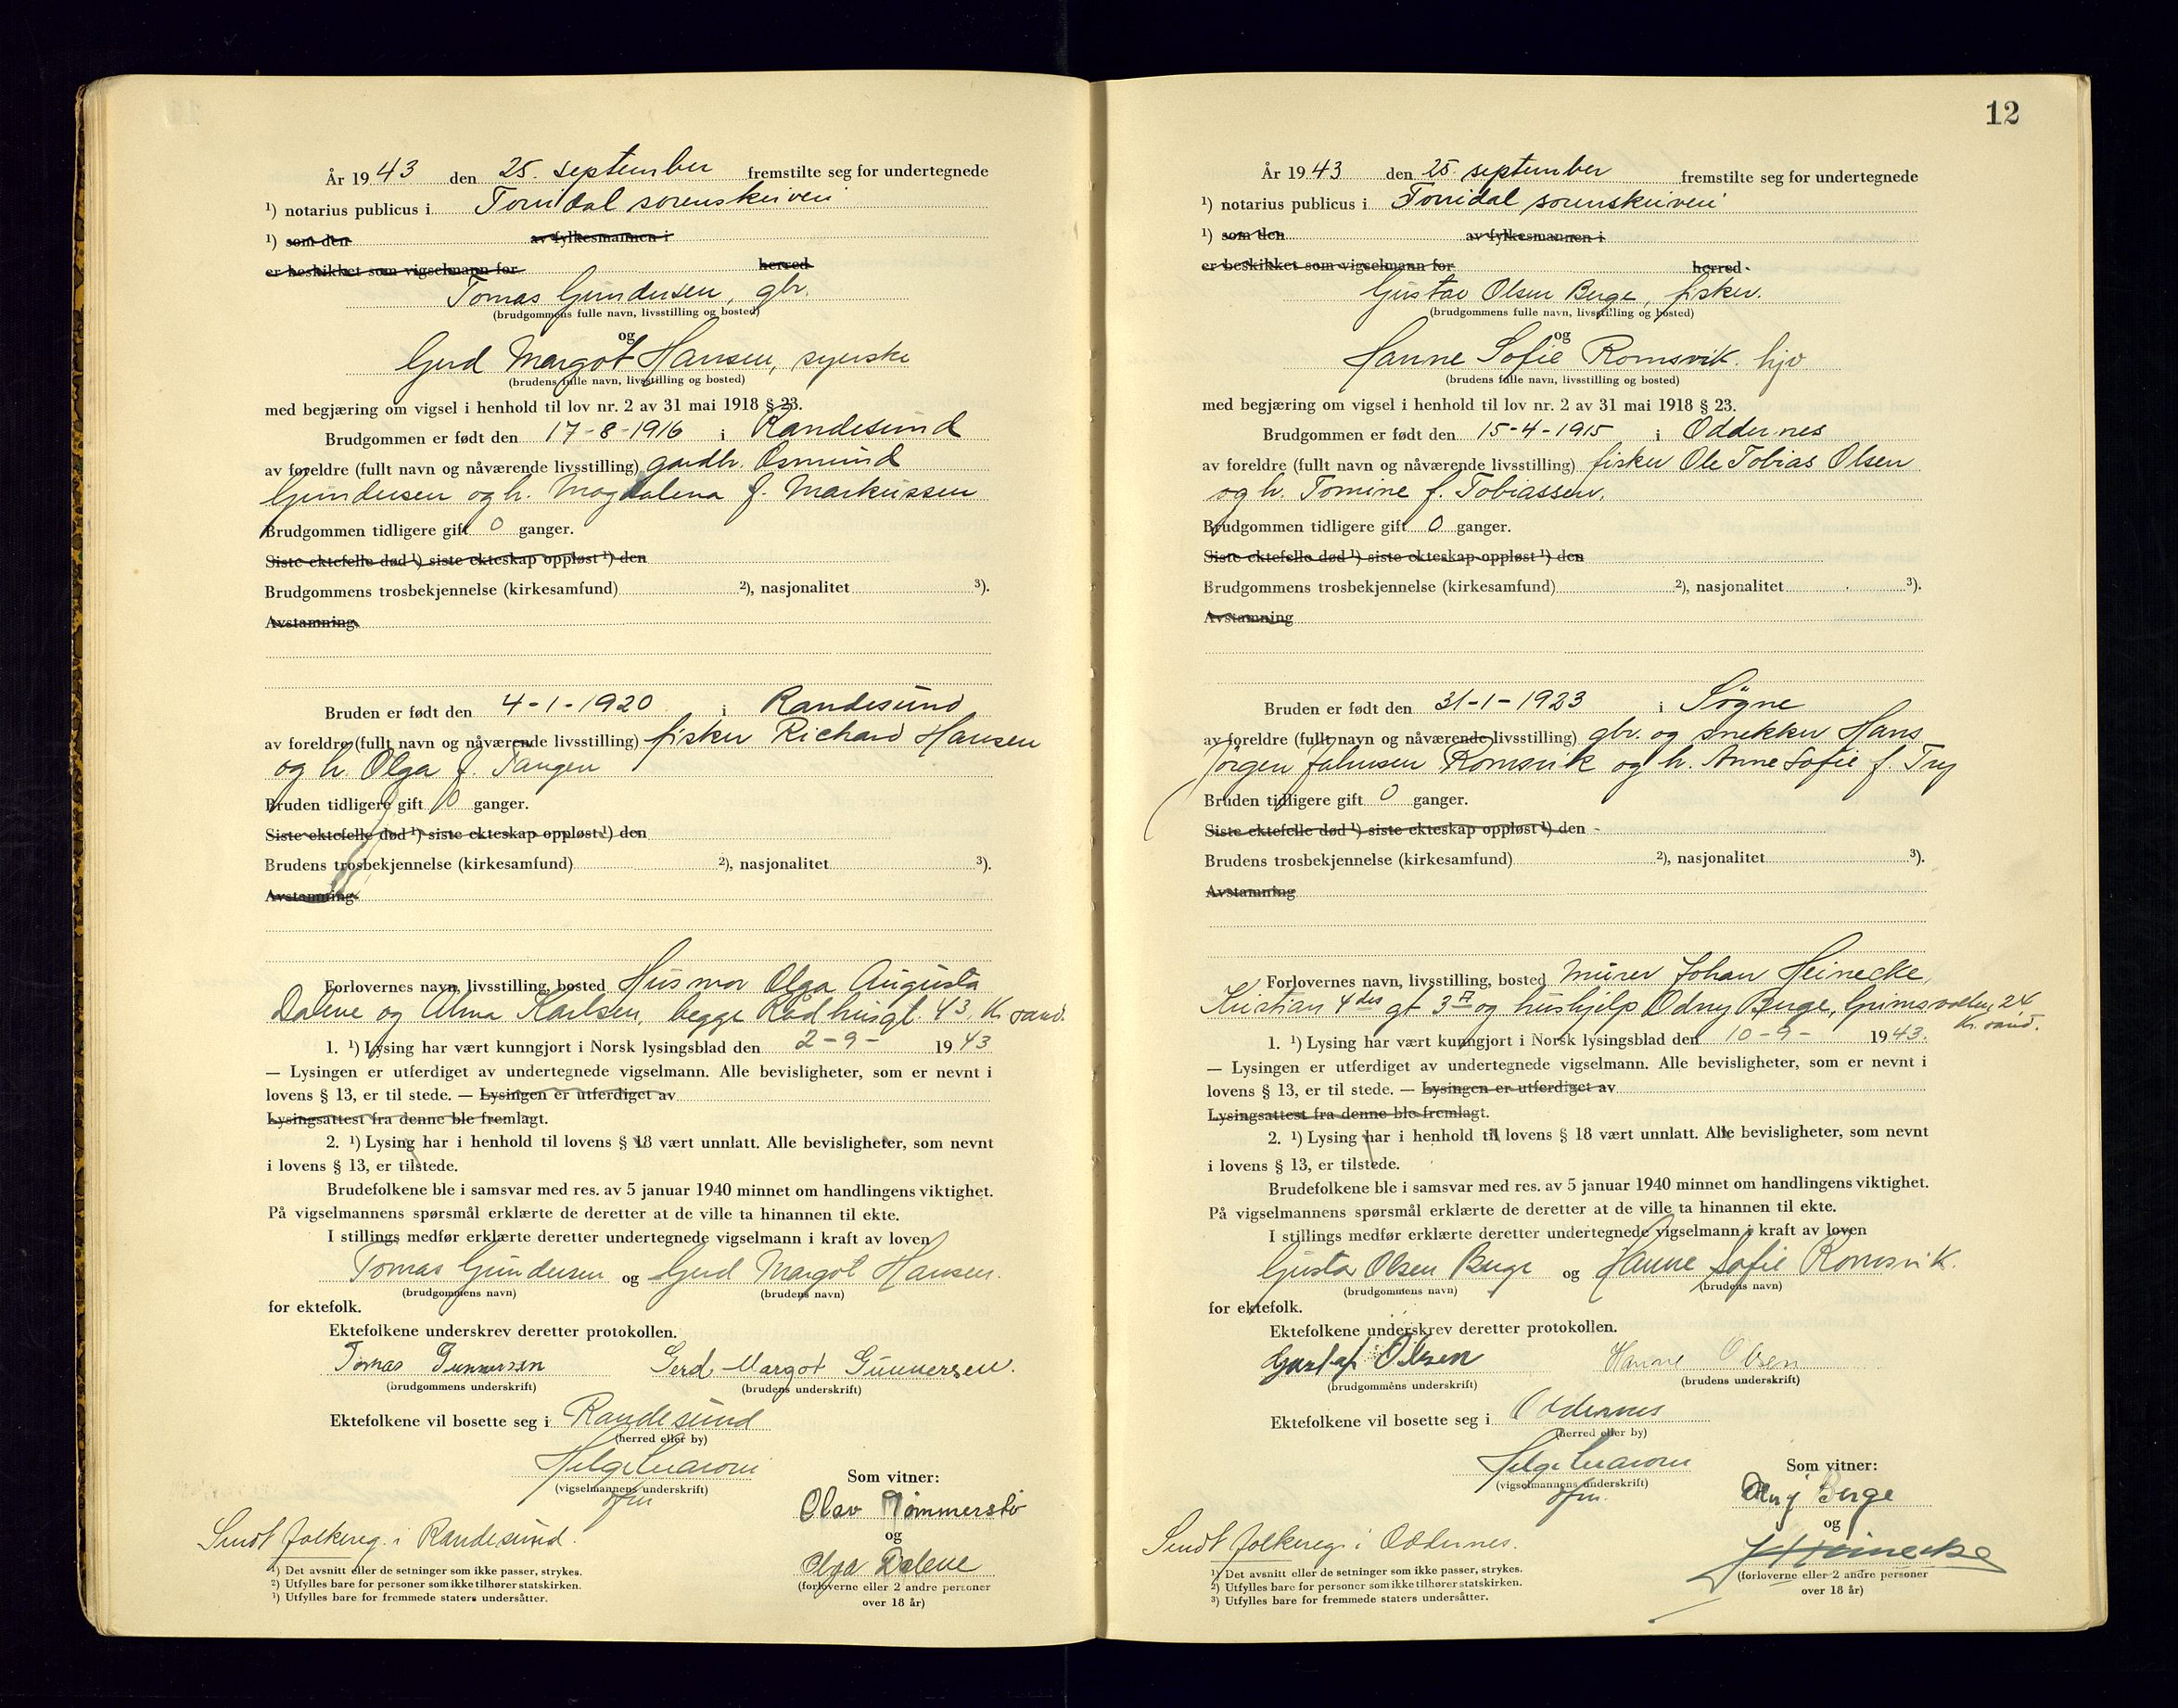 År 1943 den 25. september fremstilte seg for undertegnede
¹) notarius publicus i Torridal sorenskriveri
¹) som den av fylkesmannen i
er beskikket som vigselmann for herred
Tomas Gundersen, gbr.
(brudgommens fulle navn, livsstilling og bosted)
og
Gerd Margot Hansen, syerske
(brudens fulle navn, livsstilling og bosted)
med begjæring om vigsel i henhold til lov nr. 2 av 31 mai 1918 § 23.
Brudgommen er født den 17-8-1916 i Randesund
av foreldre (fullt navn og nåværende livsstilling) gardbr. Osmund
Gundersen og h. Magdalena f. Markussen
Brudgommen tidligere gift 0 ganger.
Siste ektefelle død ¹) siste ekteskap oppløst ¹) den
Brudgommens trosbekjennelse (kirkesamfund) ²), nasjonalitet ³).
Avstamning
Bruden er født den 4-1-1920 i Randesund
av foreldre (fullt navn og nåværende livsstilling) fisker Richard Hansen
og h. Olga f. Tangen
Bruden tidligere gift 0 ganger.
Siste ektefelle død ¹) siste ekteskap oppløst ¹) den
Brudens trosbekjennelse (kirkesamfund) ²), nasjonalitet ³).
Avstamning
Forlovernes navn, livsstilling, bosted Husmor Olga Augusta
Dalene og Alma Karlsen, begge Rådhusgt. 43, Kr.sand.
1. ¹) Lysing har vært kunngjort i Norsk lysingsblad den 2-9- 1943
— Lysingen er utferdiget av undertegnede vigselmann. Alle bevisligheter, som er nevnt i
lovens § 13, er til stede. — Lysingen er utferdiget av
Lysingsattest fra denne ble fremlagt.
2. ¹) Lysing har i henhold til lovens § 18 vært unnlatt. Alle bevisligheter, som nevnt
i lovens § 13, er tilstede.
Brudefolkene ble i samsvar med res. av 5 januar 1940 minnet om handlingens viktighet.
På vigselmannens spørsmål erklærte de deretter at de ville ta hinannen til ekte.
I stillings medfør erklærte deretter undertegnede vigselmann i kraft av loven
Tomas Gundersen og Gerd Margot Hansen.
(brudgommens navn) (brudens navn)
for ektefolk.
Ektefolkene underskrev deretter protokollen.
Tomas Gunnersen Gerd Margot Gunnersen.
(brudgommens underskrift) (brudens underskrift)
Ektefolkene vil bosette seg i Randesund
(herred eller by)
(vigselmannens underskrift)
Som vitner:
Olav Tømmerstø
og
Olga Dalene
(forloverne eller 2 andre personer
over 18 år)
Sendt folkereg. i Randesund.
¹) Det avsnitt eller de setninger som ikke passer, strykes.
²) Utfylles bare for personer som ikke tilhører statskirken.
³) Utfylles bare for fremmede staters undersåtter.
12
År 1943 den 25. september fremstilte seg for undertegnede
¹) notarius publicus i Torridal sorenskriveri
¹) som den av fylkesmannen i
er beskikket som vigselmann for herred
Gustav Olsen Berge, fisker.
(brudgommens fulle navn, livsstilling og bosted)
og
Hanne Sofie Romsvik. hjv
(brudens fulle navn, livsstilling og bosted)
med begjæring om vigsel i henhold til lov nr. 2 av 31 mai 1918 § 23.
Brudgommen er født den 15-4-1915 i Oddernes
av foreldre (fullt navn og nåværende livsstilling) fisker Ole Tobias Olsen
og h. Tomine f. Tobiassen.
Brudgommen tidligere gift 0 ganger.
Siste ektefelle død ¹) siste ekteskap oppløst ¹) den
Brudgommens trosbekjennelse (kirkesamfund) ²), nasjonalitet ³).
Avstamning
Bruden er født den 31-1-1923 i Søgne
av foreldre (fullt navn og nåværende livsstilling) gbr. og snekker Hans
Jørgen Jahnsen Romsvik og h. Anne Sofie f. Try
Bruden tidligere gift 0 ganger.
Siste ektefelle død ¹) siste ekteskap oppløst ¹) den
Brudens trosbekjennelse (kirkesamfund) ²), nasjonalitet ³).
Avstamning
Forlovernes navn, livsstilling, bosted Murer Johan Heinecke,
Kristian 4des gt og hushjelp Odny Berge, Grimsvollen 24
Kr.sand.
1. ¹) Lysing har vært kunngjort i Norsk lysingsblad den 10-9- 1943.
— Lysingen er utferdiget av undertegnede vigselmann. Alle bevisligheter, som er nevnt i
lovens § 13, er til stede. — Lysingen er utferdiget av
Lysingsattest fra denne ble fremlagt.
2. ¹) Lysing har i henhold til lovens § 18 vært unnlatt. Alle bevisligheter, som nevnt
i lovens § 13, er tilstede.
Brudefolkene ble i samsvar med res. av 5 januar 1940 minnet om handlingens viktighet.
På vigselmannens spørsmål erklærte de deretter at de ville ta hinannen til ekte.
I stillings medfør erklærte deretter undertegnede vigselmann i kraft av loven
Gustav Olsen Berge og Hanne Sofie Romsvik.
(brudgommens navn) (brudens navn)
for ektefolk.
Ektefolkene underskrev deretter protokollen.
Gustaf Olsen Hanne Olsen
(brudgommens underskrift) (brudens underskrift)
Ektefolkene vil bosette seg i Oddernes
(herred eller by)
(vigselmannens underskrift)
Som vitner:
Berge
og
J Heinecke
(forloverne eller 2 andre personer
over 18 år)
Sendt folkereg. i Oddernes.
¹) Det avsnitt eller de setninger som ikke passer, strykes.
²) Utfylles bare for personer som ikke tilhører statskirken.
³) Utfylles bare for fremmede staters undersåtter.